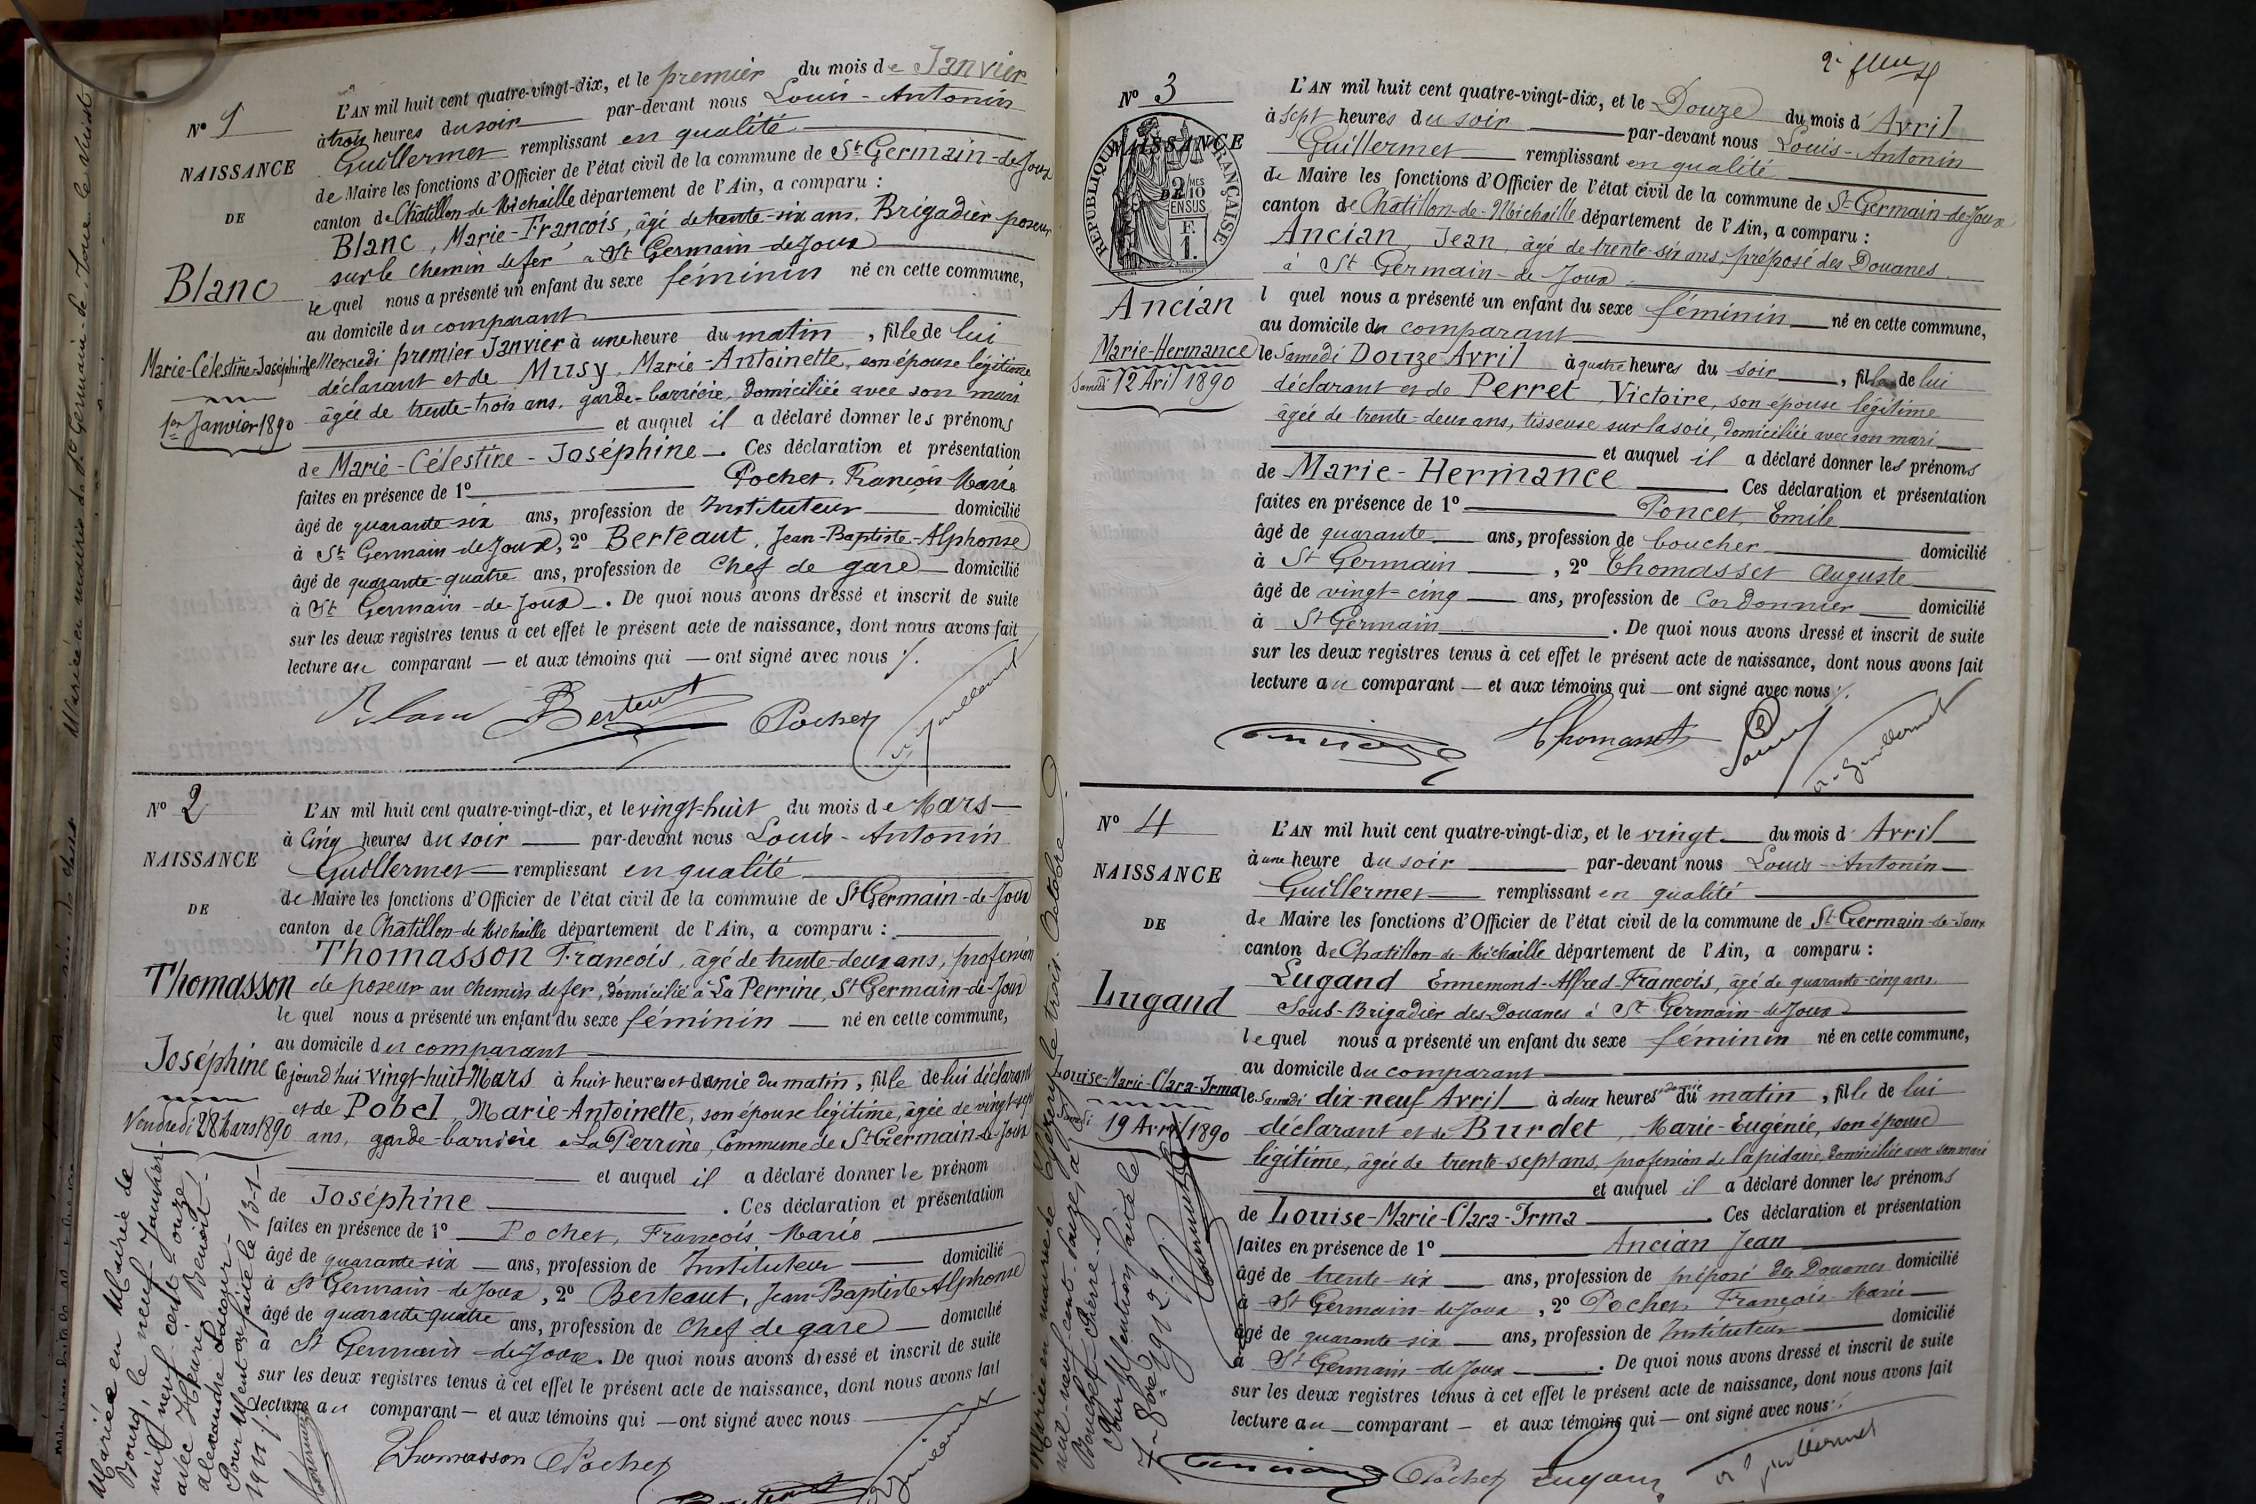 Nº 1
NAISSANCE
DE
Blanc
Marie-Célestine-Joséphine
1er Janvier 1890
L'AN mil huit cent quatre-vingt-dix, et le premier du mois de Janvier
à trois heures du soir par-devant nous Louis-Antonin
Guillermet remplissant en qualité
de Maire les fonctions d'Officier de l'état civil de la commune de St Germain-de-Joux
canton de Châtillon-de-Michaille département de l'Ain, a comparu :
Blanc, Marie-François, âgé de trente-six ans, Brigadier-poseur
sur le chemin de fer à St Germain-de-Joux
le quel nous a présenté un enfant du sexe féminin né en cette commune,
au domicile du comparant
le Mercredi premier Janvier à une heure du matin, fille de lui
déclarant et de Musy, Marie-Antoinette, son épouse légitime
âgée de trente-trois ans, garde-barrière, domiciliée avec son mari
et auquel il a déclaré donner les prénoms
de Marie-Célestine-Joséphine. Ces déclaration et présentation
faites en présence de 1º Pochet, François Marie
âgé de quarante six ans, profession de Instituteur domicilié
à St Germain-de-Joux, 2º Berteaut, Jean-Baptiste-Alphonse
âgé de quarante-quatre ans, profession de Chef de gare domicilié
à St Germain-de-Joux. De quoi nous avons dressé et inscrit de suite
sur les deux registres tenus à cet effet le présent acte de naissance, dont nous avons fait
lecture au comparant — et aux témoins qui — ont signé avec nous
Blanc Berteaut Pochet Guillermet
Nº 2
NAISSANCE
DE
Thomasson
Joséphine
Vendredi 28 Mars 1890
L'AN mil huit cent quatre-vingt-dix, et le vingt-huit du mois de Mars
à Cinq heures du soir par-devant nous Louis-Antonin
Guillermet remplissant en qualité
de Maire les fonctions d'Officier de l'état civil de la commune de St Germain-de-Joux
canton de Châtillon-de-Michaille département de l'Ain, a comparu :
Thomasson François, âgé de trente-deux ans, profession
de poseur au chemin de fer, domicilié à La Perrine, St Germain-de-Joux
le quel nous a présenté un enfant du sexe féminin né en cette commune,
au domicile du comparant
Cejourd'hui vingt-huit Mars à huit heures et demie du matin, fille de lui déclarant
et de Pobel, Marie-Antoinette, son épouse légitime, âgée de vingt-sept
ans, garde-barrière à La Perrine, Commune de St Germain-de-Joux
et auquel il a déclaré donner le prénom
de Joséphine. Ces déclaration et présentation
faites en présence de 1º Pochet, François Marie
âgé de quarante-six ans, profession de Instituteur domicilié
à St Germain-de-Joux, 2º Berteaut, Jean-Baptiste-Alphonse
âgé de quarante-quatre ans, profession de Chef de gare domicilié
à St Germain-de-Joux. De quoi nous avons dressé et inscrit de suite
sur les deux registres tenus à cet effet le présent acte de naissance, dont nous avons fait
lecture au comparant — et aux témoins qui — ont signé avec nous
Thomasson Pochet
Mariée en Mairie de
Bourg, le neuf Janvier
mil neuf cent onze
avec Henri Benoit
Alexandre Lacour
Pour Mention faite le 13-1-
1911
2e feuillet
Nº 3
NAISSANCE
DE
RÉPUBLIQUE FRANÇAISE
2/10 MES EN SUS
1 F.
Ancian
Marie-Hermance
Samedi 12 Avril 1890
L'AN mil huit cent quatre-vingt-dix, et le Douze du mois d'Avril
à sept heures du soir par-devant nous Louis-Antonin
Guillermet remplissant en qualité
de Maire les fonctions d'Officier de l'état civil de la commune de St Germain-de-Joux
canton de Châtillon-de-Michaille département de l'Ain, a comparu :
Ancian, Jean, âgé de trente-six ans, préposé des Douanes
à St Germain-de-Joux
l quel nous a présenté un enfant du sexe féminin né en cette commune,
au domicile du comparant
le Samedi Douze Avril à quatre heures du soir, fille de lui
déclarant et de Perret, Victoire, son épouse légitime
âgée de trente-deux ans, tisseuse sur la soie, domiciliée avec son mari
et auquel il a déclaré donner les prénoms
de Marie-Hermance. Ces déclaration et présentation
faites en présence de 1º Poncet, Emile
âgé de quarante ans, profession de boucher domicilié
à St Germain, 2º Thomasset Auguste
âgé de vingt-cinq ans, profession de Cordonnier domicilié
à St Germain. De quoi nous avons dressé et inscrit de suite
sur les deux registres tenus à cet effet le présent acte de naissance, dont nous avons fait
lecture au comparant — et aux témoins qui — ont signé avec nous
Ancian Thomasset Guillermet
Nº 4
NAISSANCE
DE
Lugand
Louise-Marie-Clara-Irma
Samedi 19 Avril 1890
L'AN mil huit cent quatre-vingt-dix, et le vingt du mois d'Avril
à une heure du soir par-devant nous Louis-Antonin
Guillermet remplissant en qualité
de Maire les fonctions d'Officier de l'état civil de la commune de St Germain-de-Joux
canton de Châtillon-de-Michaille département de l'Ain, a comparu :
Lugand Ennemond-Alfred-François, âgé de quarante-cinq ans
Sous-Brigadier des Douanes à St Germain-de-Joux
le quel nous a présenté un enfant du sexe féminin né en cette commune,
au domicile du comparant
le Samedi dix-neuf Avril à deux heures demie du matin, fille de lui
déclarant et de Burdet, Marie-Eugénie, son épouse
légitime, âgée de trente-sept ans, profession de lapidaire, domiciliée avec son mari
et auquel il a déclaré donner les prénoms
de Louise-Marie-Clara-Irma. Ces déclaration et présentation
faites en présence de 1º Ancian Jean
âgé de trente-six ans, profession de préposé des Douanes domicilié
à St Germain-de-Joux, 2º Pochet François Marie
âgé de quarante-six ans, profession de Instituteur domicilié
à St Germain-de-Joux. De quoi nous avons dressé et inscrit de suite
sur les deux registres tenus à cet effet le présent acte de naissance, dont nous avons fait
lecture au comparant — et aux témoins qui — ont signé avec nous
Ancian Pochet Lugand Guillermet
mil-neuf-cent-douze, à
Pour Mention faite le
7-8bre 1912